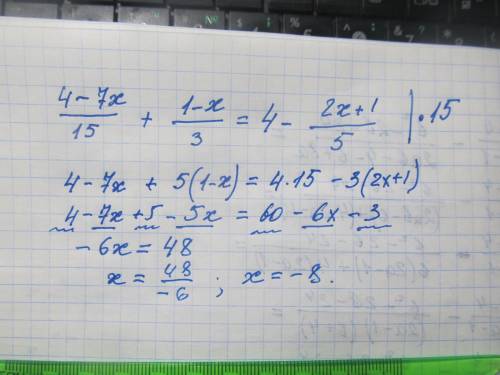 (4-7x)/15 + (1-x)/3 = 4 - (2x+1)/5 |·15
4-7x + 5(1-x) = 4·15 - 3(2x+1)
4-7x+5-5x = 60-6x-3
-6x = 48
x = 48/-6 ; x = -8.